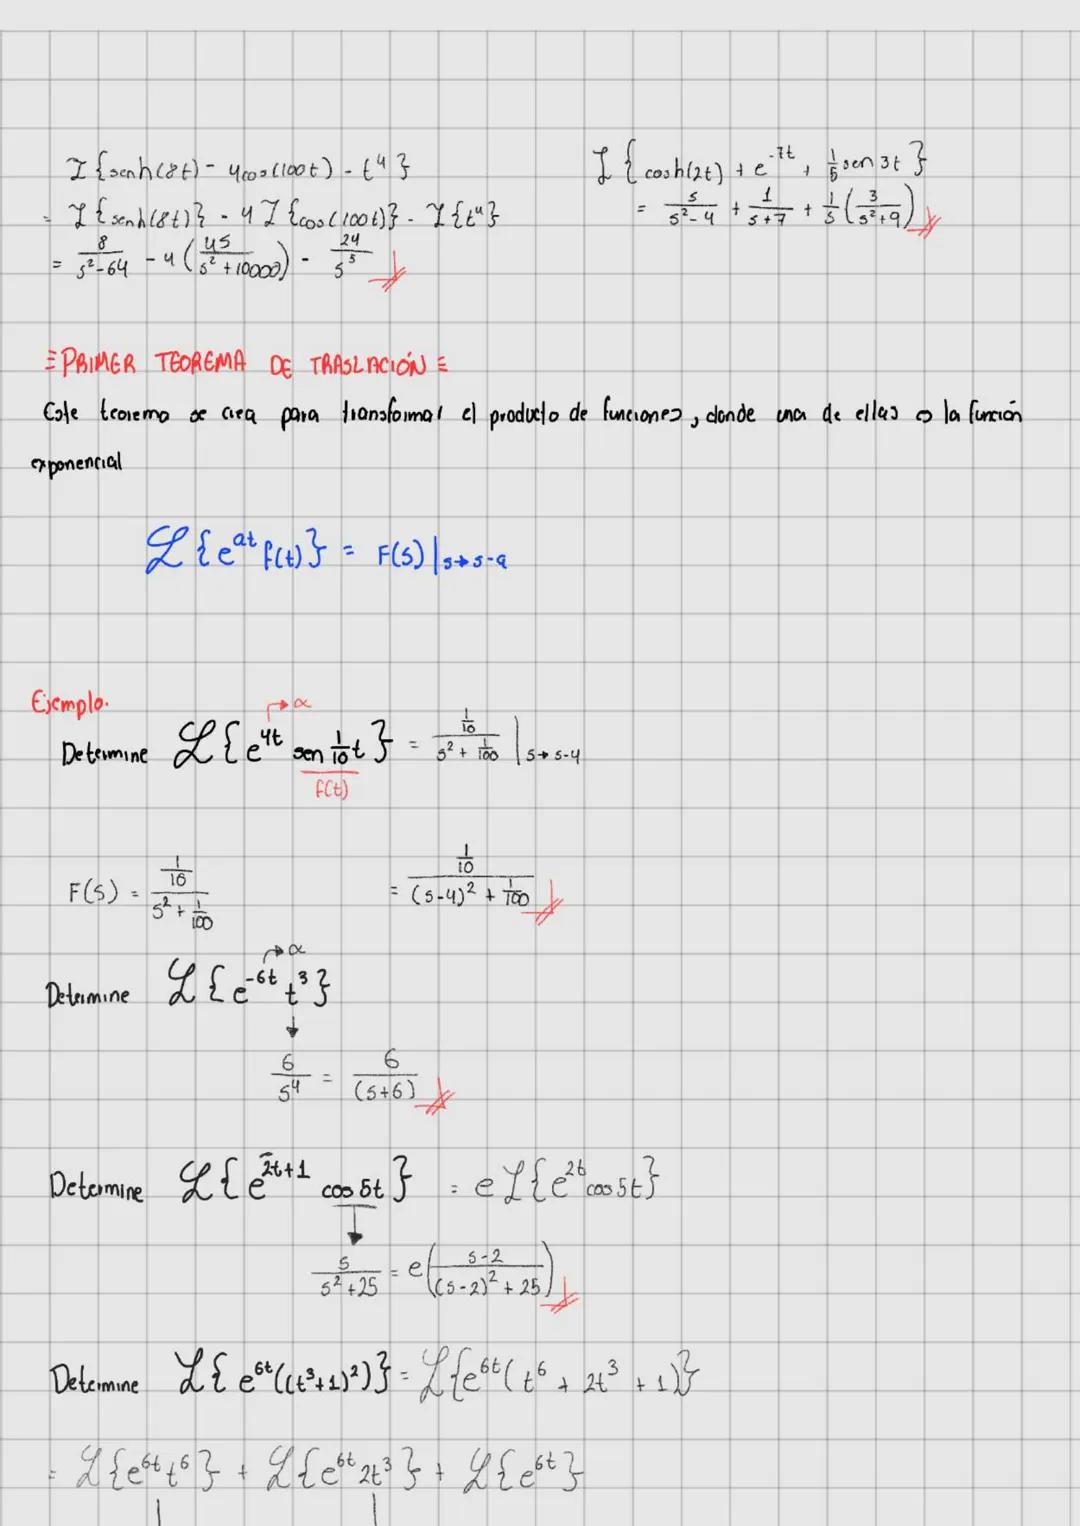 ℒ{senh(8t) - 4cos(100t) - t⁴}
= ℒ{senh(8t)} - 4 ℒ{cos(100t)} - ℒ{t⁴}
= 8/(s²-64) - 4(4s/(s²+10000)) - 24/s⁵
ℒ{cosh(2t) + e^(-7t) + 1/5 sen 3t}
= s/(s²-4) + 1/(s+7) + 1/5 (3/(s²+9))
PRIMER TEOREMA DE TRASLACIÓN
Este teorema se crea para transformar el producto de funciones, donde una de ellas es la función
exponencial
ℒ{e^(at) f(t)} = F(s)|s→s-a
Ejemplo.
→ α
Determine ℒ{e^(4t) sen 1/10 t} = (1/10)/(s² + 1/100) |s→s-4
f(t)
F(s) = (1/10)/(s² + 1/100)
= (1/10)/((s-4)² + 1/100)
→ α
Determine ℒ{e^(-6t) t³}
6/s⁴ = 6/(s+6)
Determine ℒ{e^(2t+1) cos 5t} = e ℒ{e^(2t) cos 5t}
s/(s²+25) = e((s-2)/((s-2)²+25))
Determine ℒ{e^(6t)((t³+1)²)} = ℒ{e^(6t)(t⁶ + 2t³ + 1)}
= ℒ{e^(6t) t⁶} + ℒ{e^(6t) 2t³} + ℒ{e^(6t)}